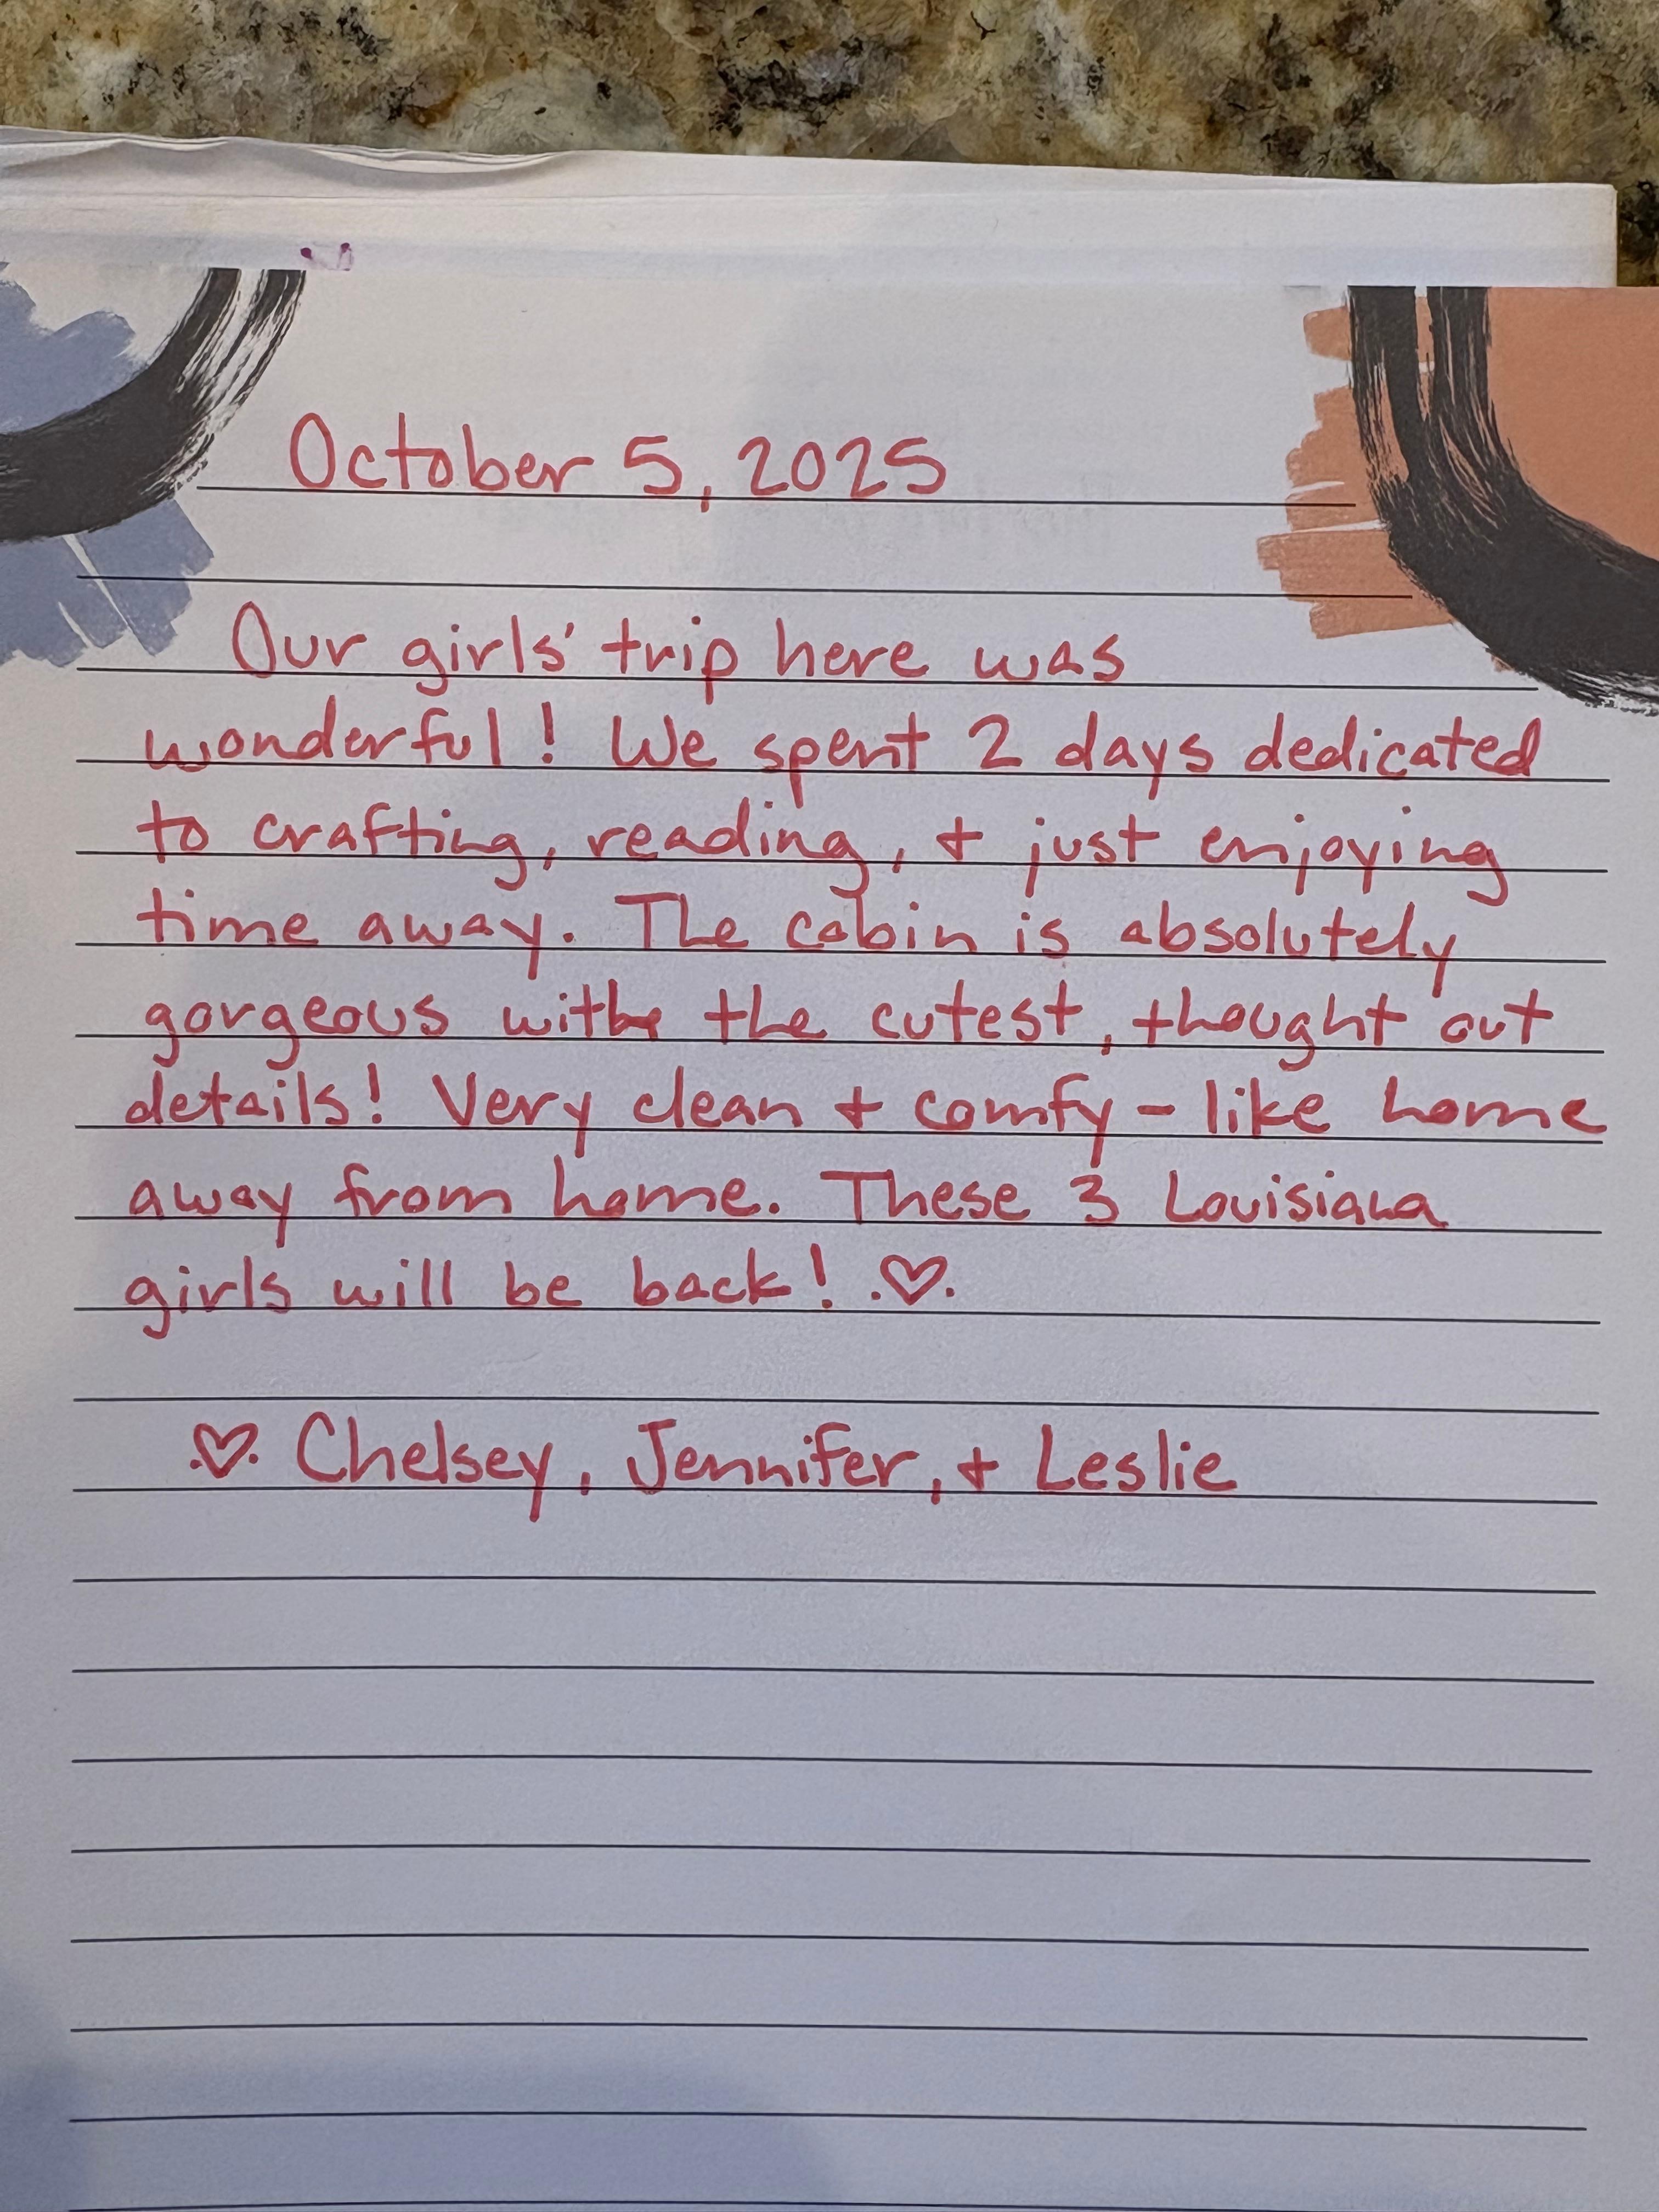 October 5, 2025
Our girls' trip here was
wonderful! We spent 2 days dedicated
to crafting, reading, + just enjoying
time away. The cabin is absolutely
gorgeous with the cutest, thought out
details! Very clean + comfy - like home
away from home. These 3 Louisiana
girls will be back! ♡
♡ Chelsey, Jennifer, + Leslie